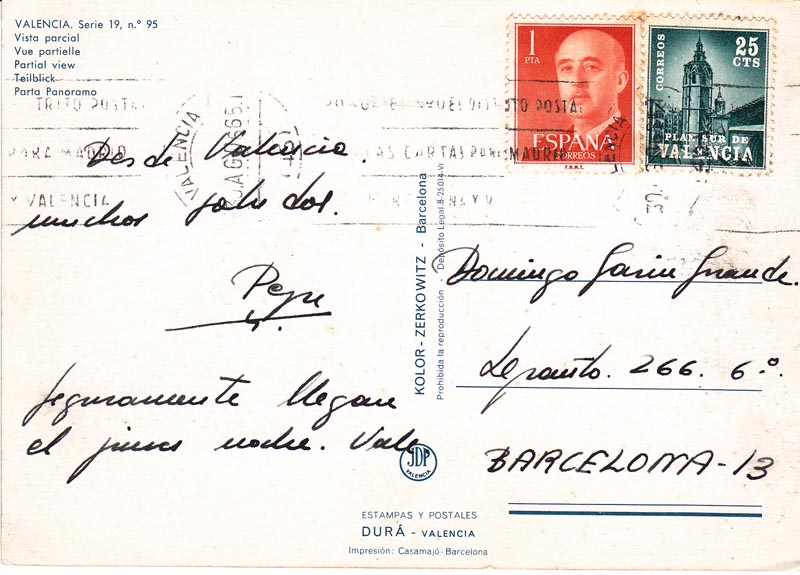 VALENCIA. Serie 19, n.º 95
Vista parcial
Vue partielle
Partial view
Teilblick
Parta Panoramo
1
PTA
ESPAÑA
CORREOS
F.N.M.T.
CORREOS
25
CTS
PLAN SUR DE
VALENCIA
PARA MADRID
Y VALENCIA
VALENCIA
MADRID
Desde Valencia.
muchos saludos.
Pepe
Seguramente llegare
el jueves noche. Vale
KOLOR - ZERKOWITZ - Barcelona
Prohibida la reproducción - Depósito Legal B-25.014-VI
Domingo Garin Grande.
Lepanto. 266. 6º.
BARCELONA-13
JDP
VALENCIA
ESTAMPAS Y POSTALES
DURÁ - VALENCIA
Impresión: Casamajó-Barcelona